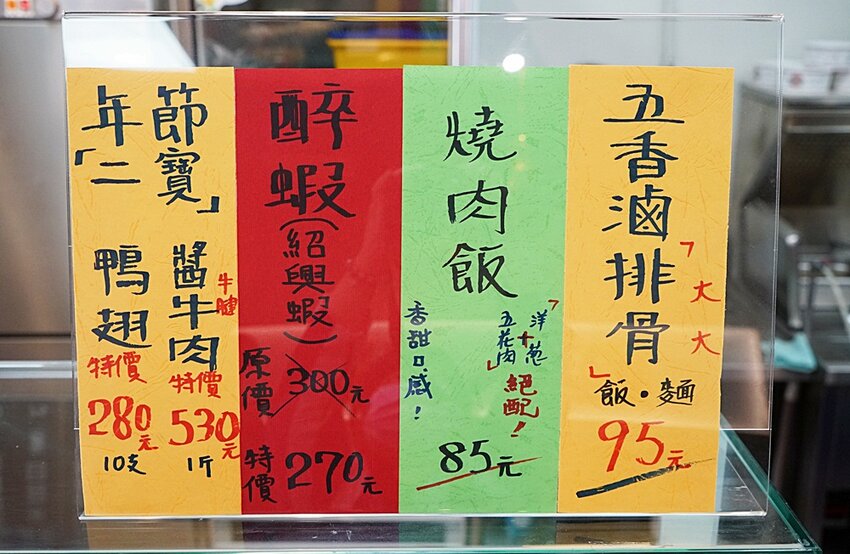 五香滷排骨
「大大」
飯・麵
95元
燒肉飯
「洋葱
+
五花肉」
絕配!
香甜口感!
85元
醉蝦
(紹興蝦)
原價
300元
特價
270元
年節
「二寶」
醬牛肉
牛腱
特價
530元
1斤
鴨翅
特價
280元
10支